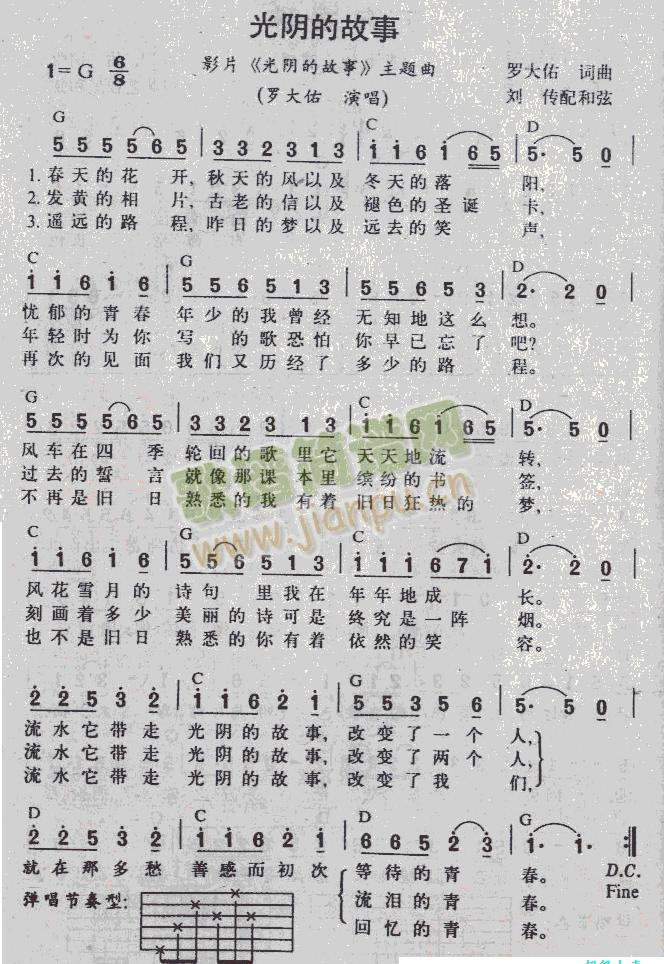 光阴的故事
1=G 6/8
影片《光阴的故事》主题曲
(罗大佑 演唱)
罗大佑 词曲
刘 传配和弦
G C D
5 5 5 5 6 5 | 3 3 2 3 1 3 | i i 6 i 6 5 | 5· 5 0 |
1.春天的花 开,秋天的风以及 冬天的落 阳,
2.发黄的相 片,古老的信以及 褪色的圣诞 卡,
3.遥远的路 程,昨日的梦以及 远去的笑 声,
C G D
i i 6 i 6 | 5 5 6 5 1 3 | 5 5 6 5 3 | 2· 2 0 |
忧郁的青春 年少的我曾经 无知地这么 想。
年轻时为你 写 的歌恐怕 你早已忘了 吧?
再次的见面 我们又历经了 多少的路 程。
G C D
5 5 5 5 6 5 | 3 3 2 3 1 3 | i i 6 i 6 5 | 5· 5 0 |
风车在四 季 轮回的歌 里它 天天地流 转,
过去的誓 言 就像那课 本里 缤纷的书 签,
不再是旧 日 熟悉的我 有着 旧日狂热的 梦,
C G C D
i i 6 i 6 | 5 5 6 5 1 3 | i i i 6 7 i | 2· 2 0 |
风花雪月的 诗句 里我在 年年地成 长。
刻画着多少 美丽的诗可是 终究是一阵 烟。
也不是旧日 熟悉的你有着 依然的笑 容。
D C G
2 2 5 3 2 | i i 6 2 i | 5 5 3 5 6 | 5· 5 0 |
流水它带走 光阴的故事, 改变了一个 人,
流水它带走 光阴的故事, 改变了两个 人,
流水它带走 光阴的故事, 改变了我 们,
D C D G
2 2 5 3 2 | i i 6 2 i | 6 6 5 2 3 | i· i· :‖
就在那多愁 善感而初次 等待的青 春。 D.C.
流泪的青 春。 Fine
回忆的青 春。
弹唱节奏型:
www.jianpu.cn